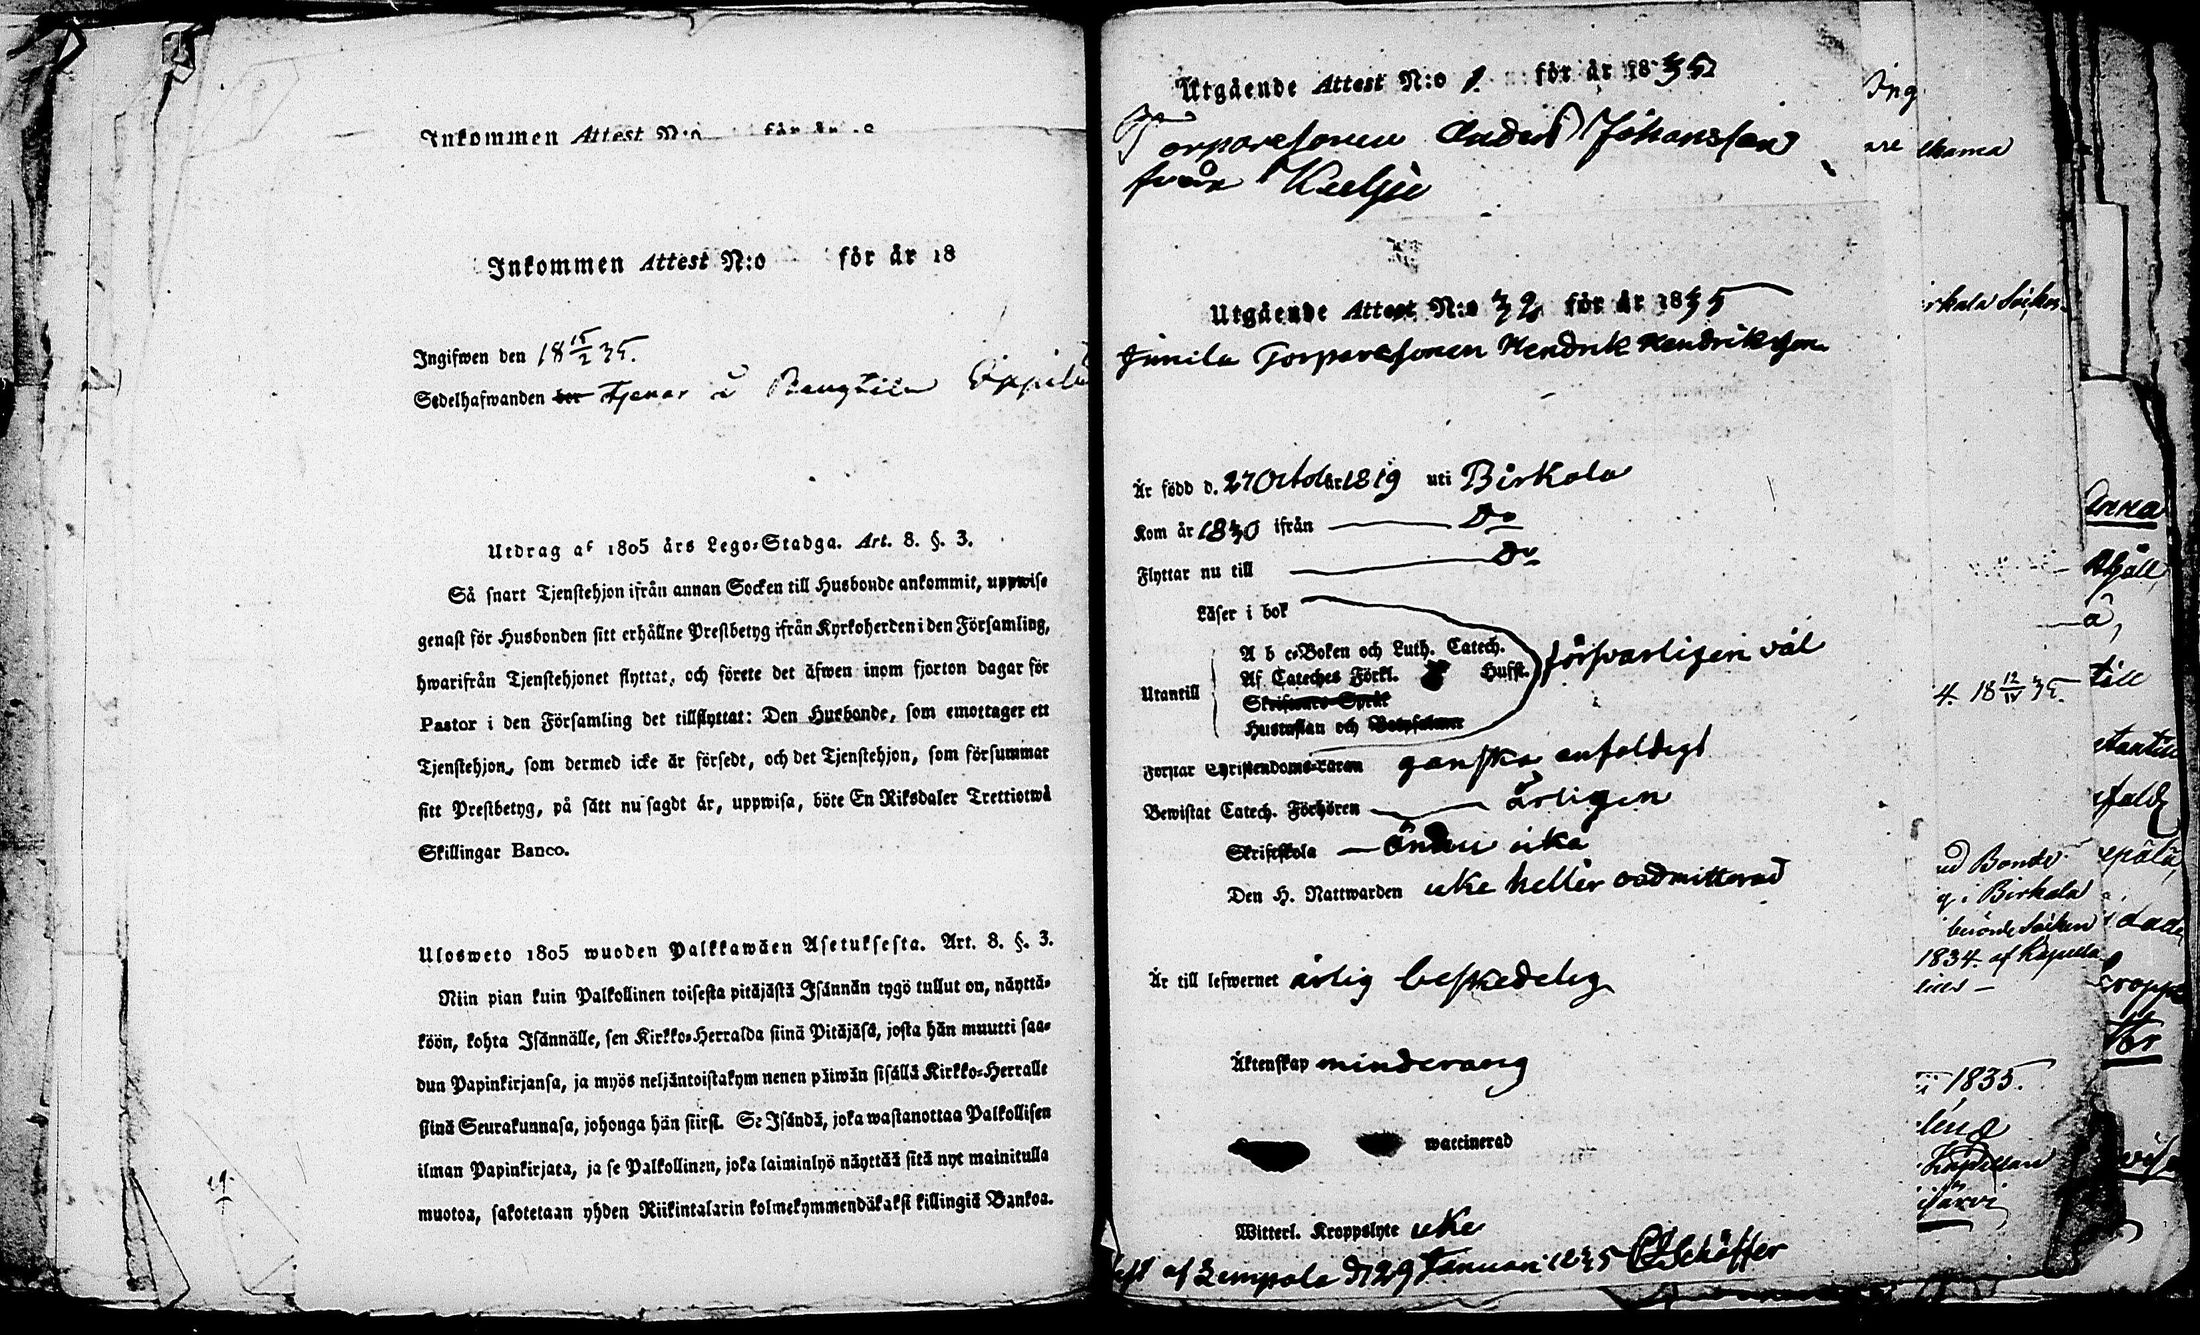 Inkommen Attest N:o för år 18
Inkommen Attest N:o för år 18
Ingifwen den 18 15/2 35.
Sedelhafwanden bor Tjenar i
Utdrag af 1805 års Lego-Stadga. Art. 8. §. 3.
Så snart Tjenstehjon ifrån annan Socken till Husbonde ankommit, uppwise
genast för Husbonden sitt erhållne Prestbetyg ifrån Kyrkoherden i den Församling,
hwarifrån Tjenstehjonet flyttat, och förete det äfwen inom fjorton dagar för
Pastor i den Församling det tillflyttat: Den Husbonde, som emottager ett
Tjenstehjon, som dermed icke är försedt, och det Tjenstehjon, som försummar
sitt Prestbetyg, på sätt nu sagdt är, uppwisa, böte En Riksdaler Trettiotwå
Skillingar Banco.
Ulosweto 1805 wuoden Palkkawäen Asetuksesta. Art. 8. §. 3.
Niin pian kuin Palkollinen toisesta pitäjästä Isännän tygö tullut on, näyttä-
köön, kohta Isännälle, sen Kirkko-Herralda siinä Pitäjäsä, josta hän muutti saa-
dun Papinkirjansa, ja myös neljäntoistakym nenen päiwän sisällä Kirkko-Herralle
siinä Seurakunnasa, johonga hän siirst. Se Isändä, joka wastanottaa Palkollisen
ilman Papinkirjata, ja se Palkollinen, joka laiminlyö näyttää sitä nyt mainitulla
muotoa, sakotetaan yhden Riikintalarin kolmekymmendäkaksi killingiä Bankoa.
Utgående Attest N:o 1. för år 1835
Torparesonen Anders Johansson
från
Utgående Attest N:o 32 för år 1835
Torparesonen Hendrik Hendriksson
Är född d. 27 October 1819 uti Birkala
Kom år 1830 ifrån Do
Flyttar nu till Do
Läser i bok
Utantill
A b c-Boken och Luth. Catech.
Af Cateches Förkl. Hufst.
Skriftenes Språk
Hustaflan och Botpsalmer
försvarligen väl
Forstår Christendoms-Läran ganska enfaldigt
Bewistat Catech. Förhören årligen
Skriftskola ännu icke
Den H. Nattwarden icke heller admitterad
Är till lefwernet ärlig beskedelig
Äktenskap minderårig
waccinerad
Witterl. Kroppslyte icke
af Lempola d 29 Januari 1835 Schäffer
Birkala
1834. af
1835.